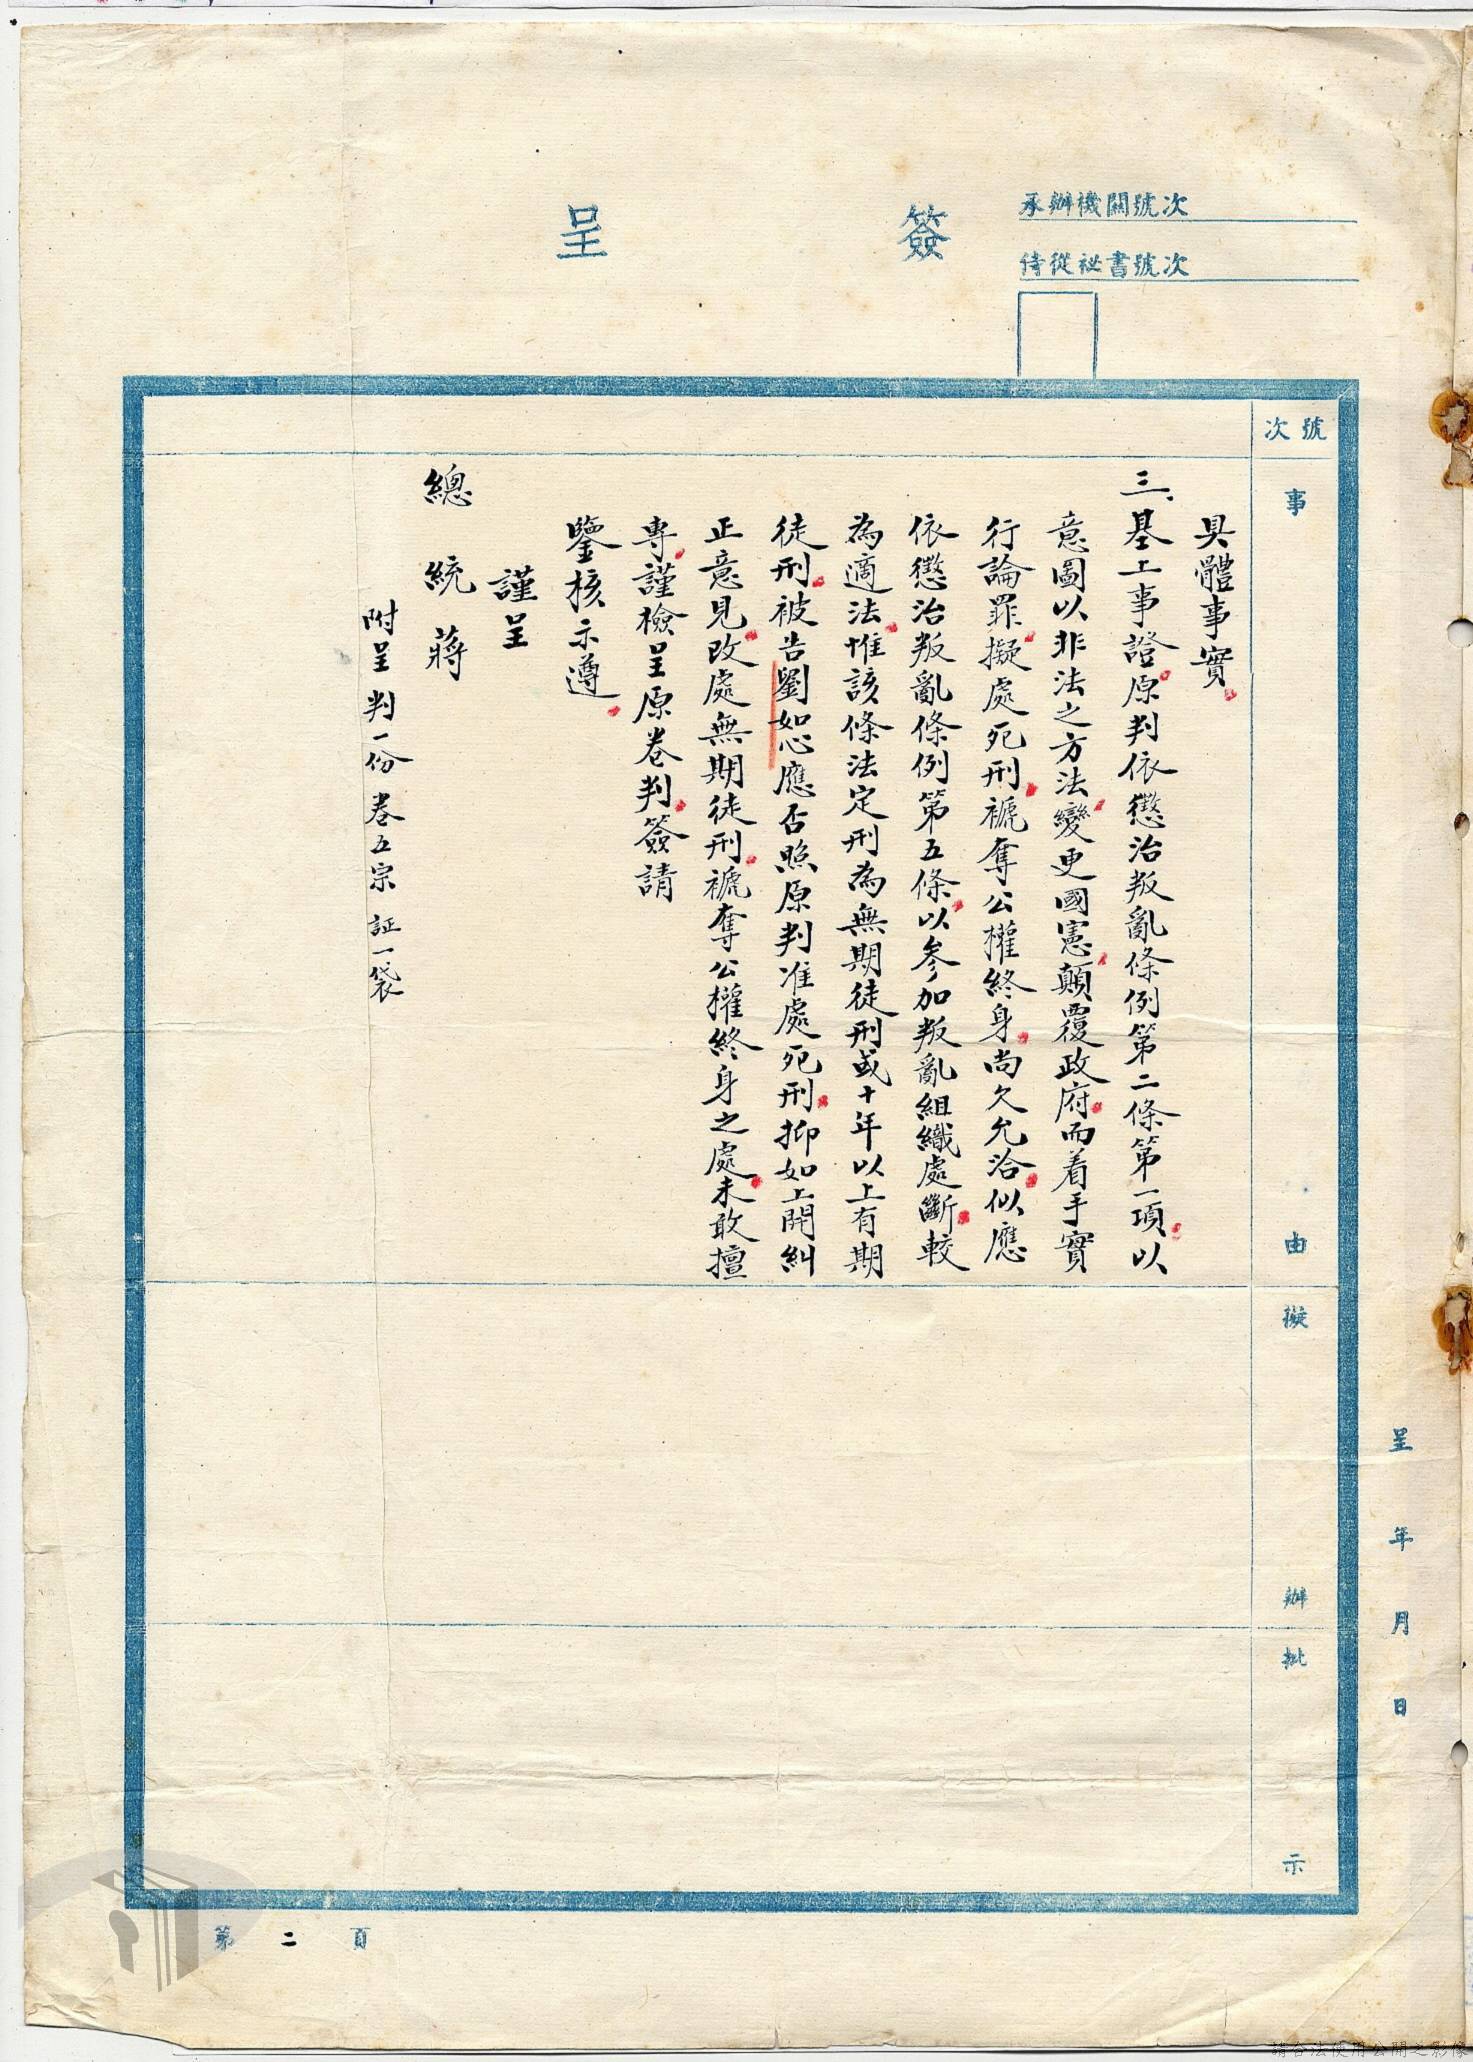 簽呈
承辦機關號次
侍從祕書號次
號次
事由
擬辦
批示
呈 年 月 日
具體事實。
三、基上事證。原判依懲治叛亂條例第二條第一項。以
意圖以非法之方法。變更國憲。顛覆政府。而着手實
行論罪。擬處死刑。褫奪公權終身。尚欠允洽。似應
依懲治叛亂條例第五條。以參加叛亂組織處斷。較
為適法。惟該條法定刑為無期徒刑或十年以上有期
徒刑。被告劉如心應否照原判准處死刑。抑如上開糾
正意見。改處無期徒刑。褫奪公權終身之處。未敢擅
專。謹檢呈原卷判。簽請
鑒核示遵。
謹呈
總統 蔣
附呈判一份卷五宗 証一袋
第二頁
請合法使用公開之影像